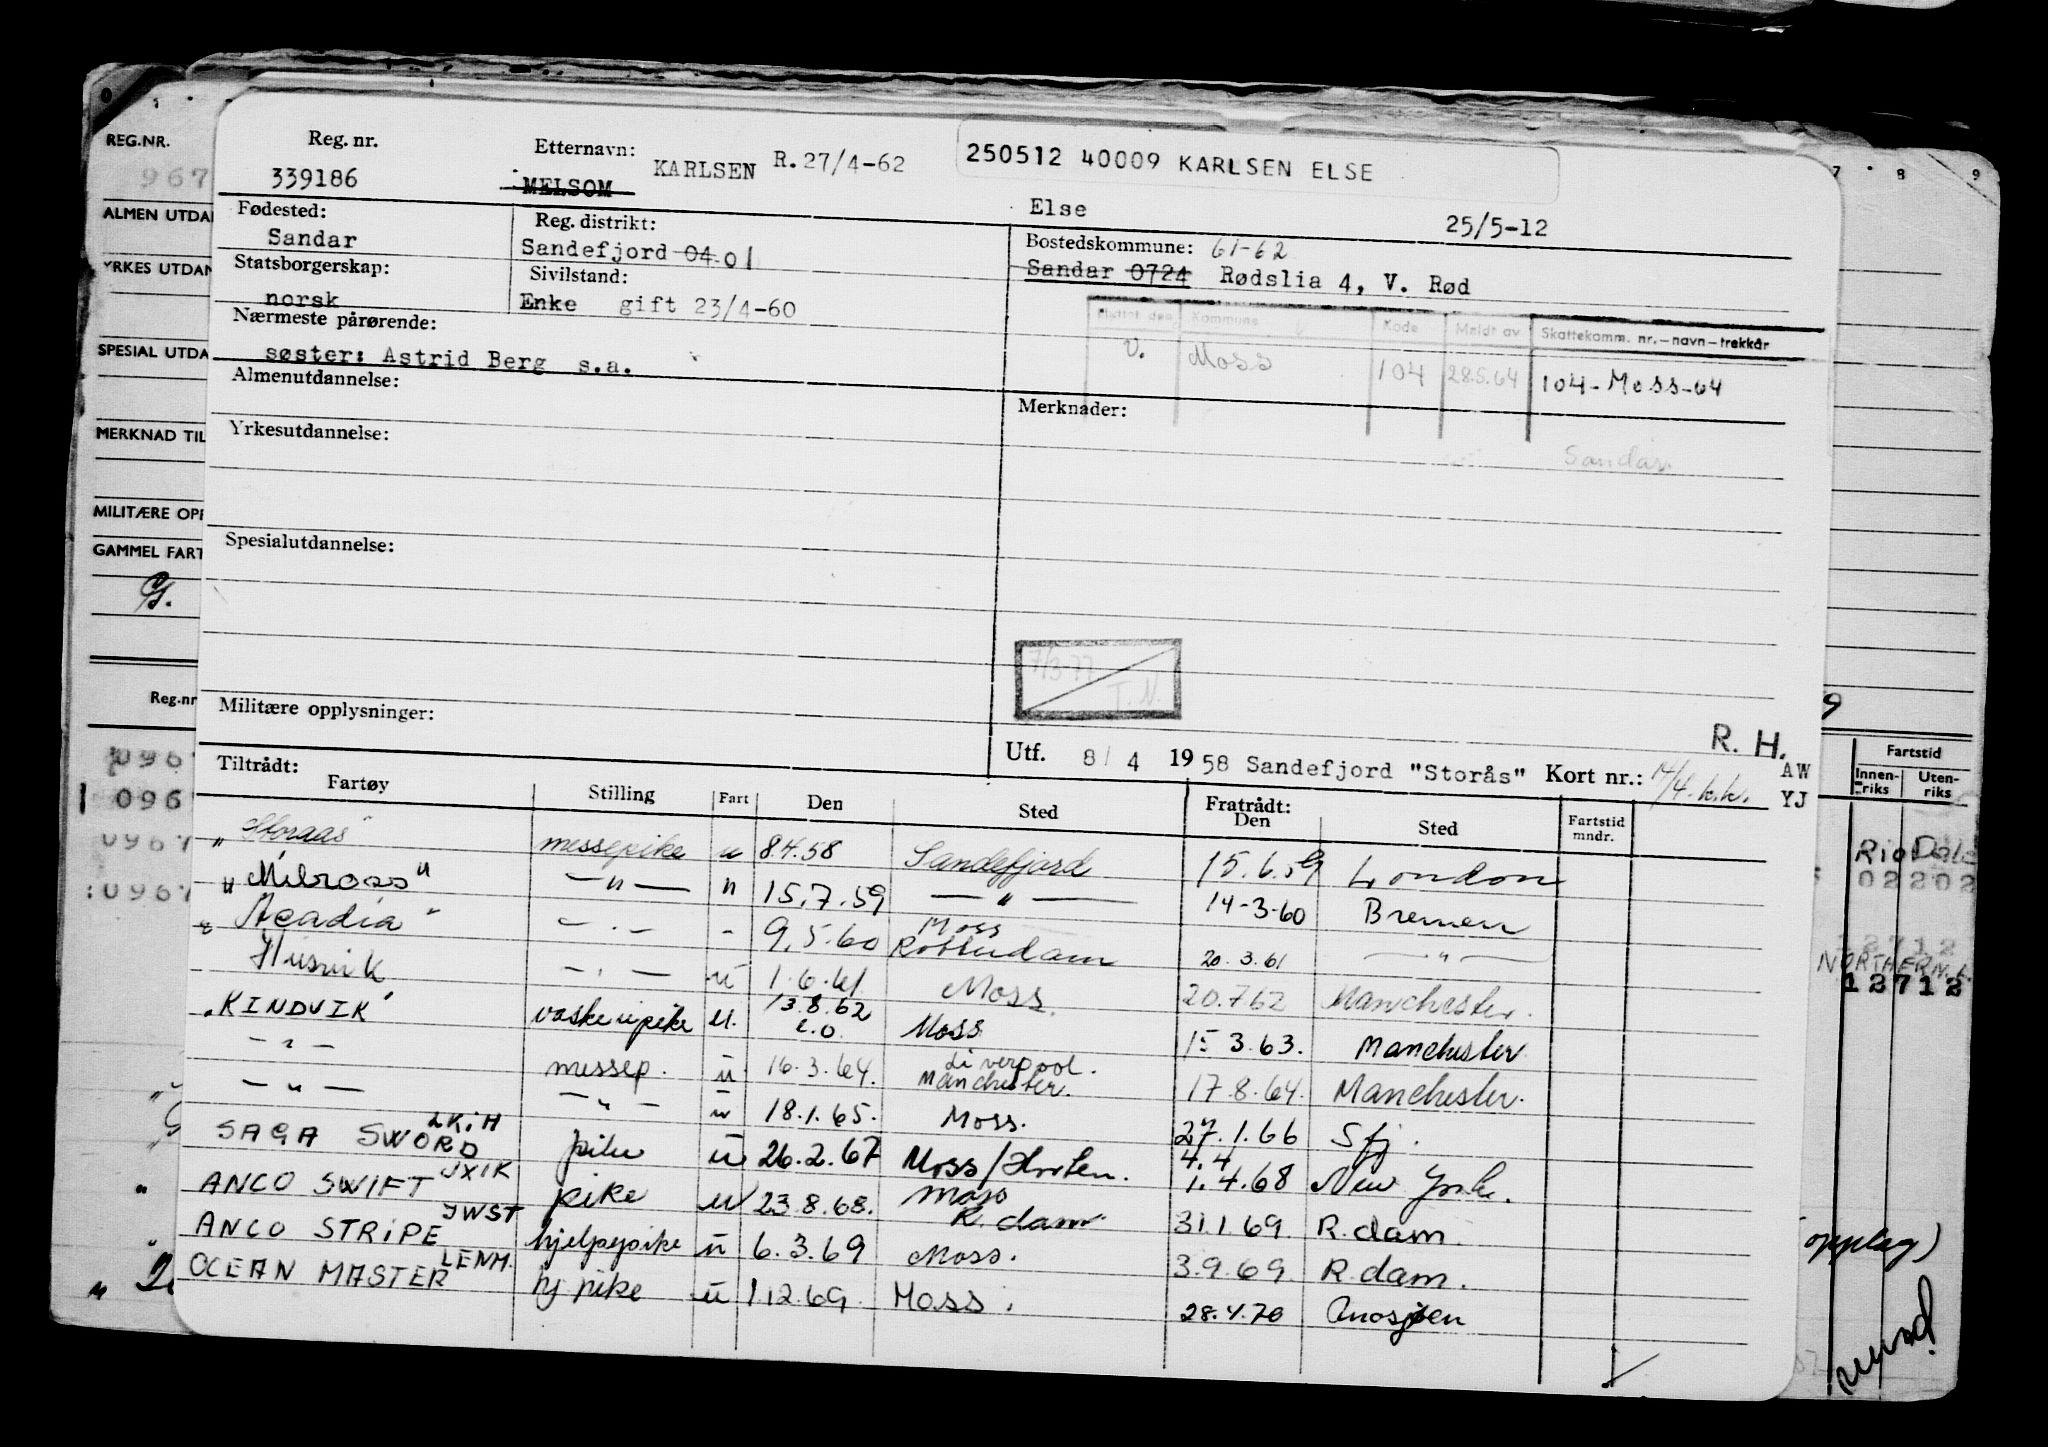 REG.NR.
967
ALMEN UTDA
YRKES UTDAN
SPESIAL UTDA
MERKNAD TIL
MILITÆRE OPP
GAMMEL FART
Reg.nr
096
096
0967
0967
Reg. nr.
339186
Etternavn:
MELSOM KARLSEN R.27/4-62
250512 40009 KARLSEN ELSE
Else 25/5-12
Fødested:
Sandar
Reg. distrikt:
Sandefjord 04 01
Bostedskommune: 61-62
Sandar 0724 Rødslia 4, V. Rød
Statsborgerskap:
norsk
Sivilstand:
Enke gift 23/4-60
Nærmeste pårørende:
søster: Astrid Berg s.a.
Flyttet den Kommune Kode Meldt av Skattekomm. nr.-navn-trekkår
V. Moss 104 28.5.64 104-Moss-64
Almenutdannelse:
Merknader:
Sandar
Yrkesutdannelse:
Spesialutdannelse:
7/3-77
T.N.
Militære opplysninger:
R. H.
Utf. 8/ 4 1958 Sandefjord "Storås" Kort nr.: 14/4. k.k. AW
YJ
Tiltrådt:
Fartøy Stilling Fart Den Sted Fratrådt:
Den Sted Fartstid
mndr.
"Storaas" messepike u 8.4.58 Sandefjord 15.6.59 London
"Milross" — " — " 15.7.59 — " — 14-3-60 Bremen
"Acadia" — " — - 9.5.60 Moss Rotterdam 20.3.61 — " —
Husvik — " — u 1.6.61 Moss 20.7.62 Manchester.
"KINDVIK" vaskeripike u. 13.8.62 Moss 15 3.63. Manchester
— " — messep. u 16.3.64. Liverpool. Manchester. 17.8.64. Manchester.
— " — — " — u 18.1.65. Moss. 27.1.66 Sfj.
SAGA SWORD LKIH pike u 26.2.67 Moss/Horten. 4.4 1.4.68 New York.
ANCO SWIFT JXIK pike u 23.8.68. Moss R.dam 31.1.69. R.dam
ANCO STRIPE JWST hjelpepike u 6.3.69 Moss. 3.9.69. R.dam.
OCEAN MASTER LENM. hj pike u 1.12.69. Moss. 28.4.70
7 8 9
9
Fartstid
Innen-
riks Uten-
riks
Rio
02202
2712
NORTHERN
12712
opplag)